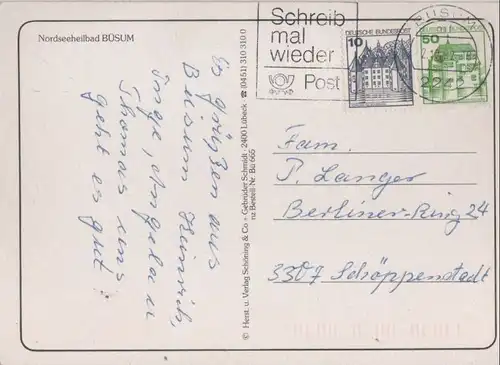 Nordseeheilbad BÜSUM
Es grüßen aus
Büsum Heinrich,
Inge, Angela u
Thomas uns
geht es gut!
© Herst. u. Verlag Schöning & Co + Gebrüder Schmidt · 2400 Lübeck · ☎ (0451) 310 310
nz Bestell-Nr. Bü 665
Schreib
mal
wieder
Post
10
DEUTSCHE BUNDESPOST
50
DEUTSCHE BUNDESPOST
BÜSUM
Fam.
P. Langer
Berliner-Ring 24
3307 Schöppenstedt